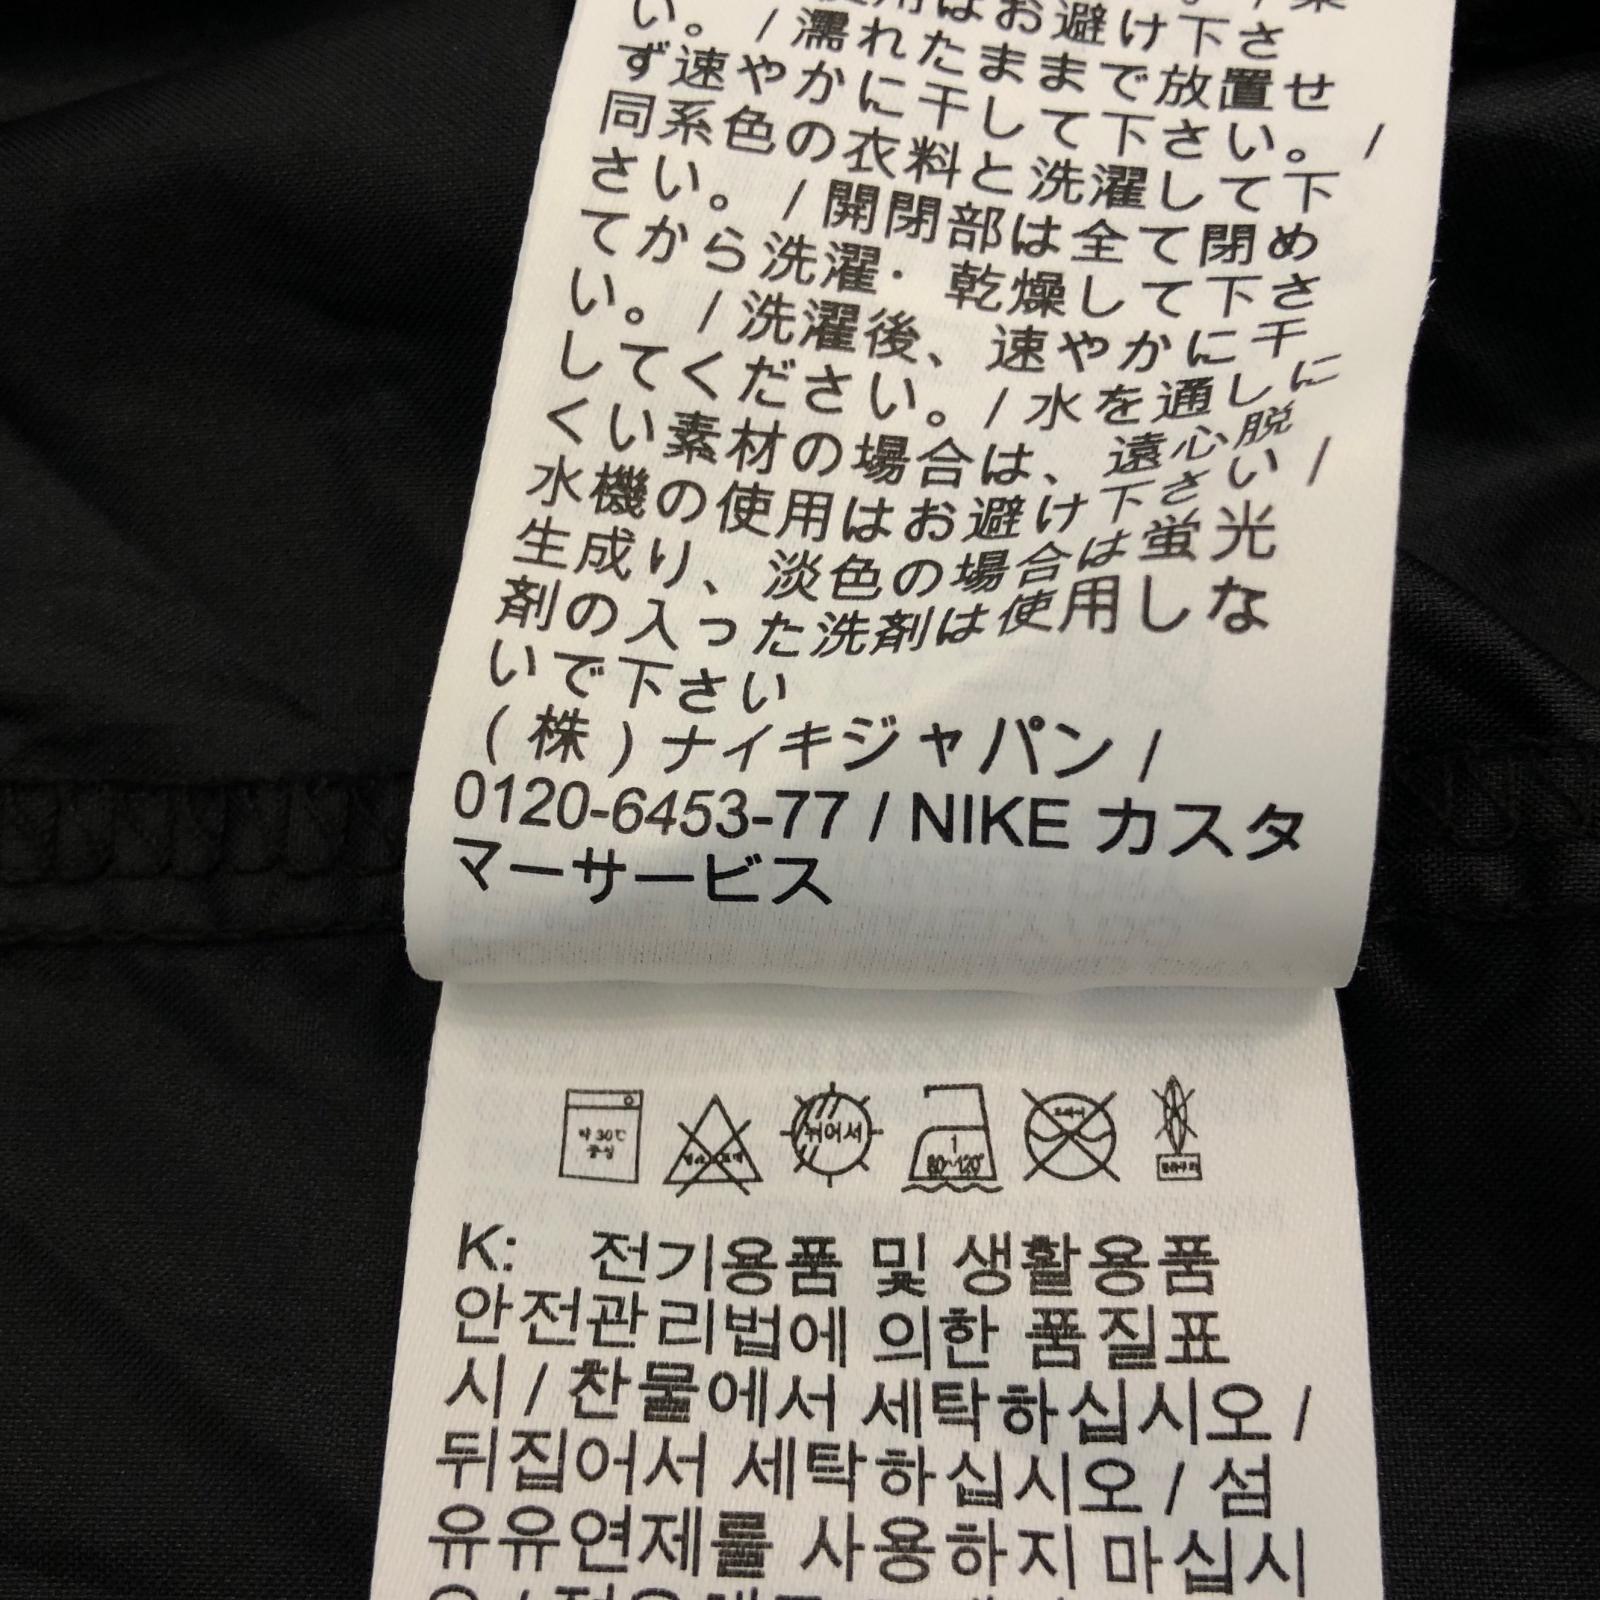 用はお避け下さ
い。/濡れたままで放置せ
ず速やかに干して下さい。/
同系色の衣料と洗濯して下
さい。/開閉部は全て閉め
てから洗濯・乾燥して下さ
い。/洗濯後、速やかに干
してください。/水を通しに
くい素材の場合は、遠心脱
水機の使用はお避け下さい/
生成り、淡色の場合は蛍光
剤の入った洗剤は使用しな
いで下さい
(株)ナイキジャパン/
0120-6453-77 / NIKE カスタ
マーサービス
약 30℃
중성
뉘어서
1
80~120°
드라이
K: 전기용품 및 생활용품
안전관리법에 의한 품질표
시 / 찬물에서 세탁하십시오 /
뒤집어서 세탁하십시오 / 섬
유유연제를 사용하지 마십시